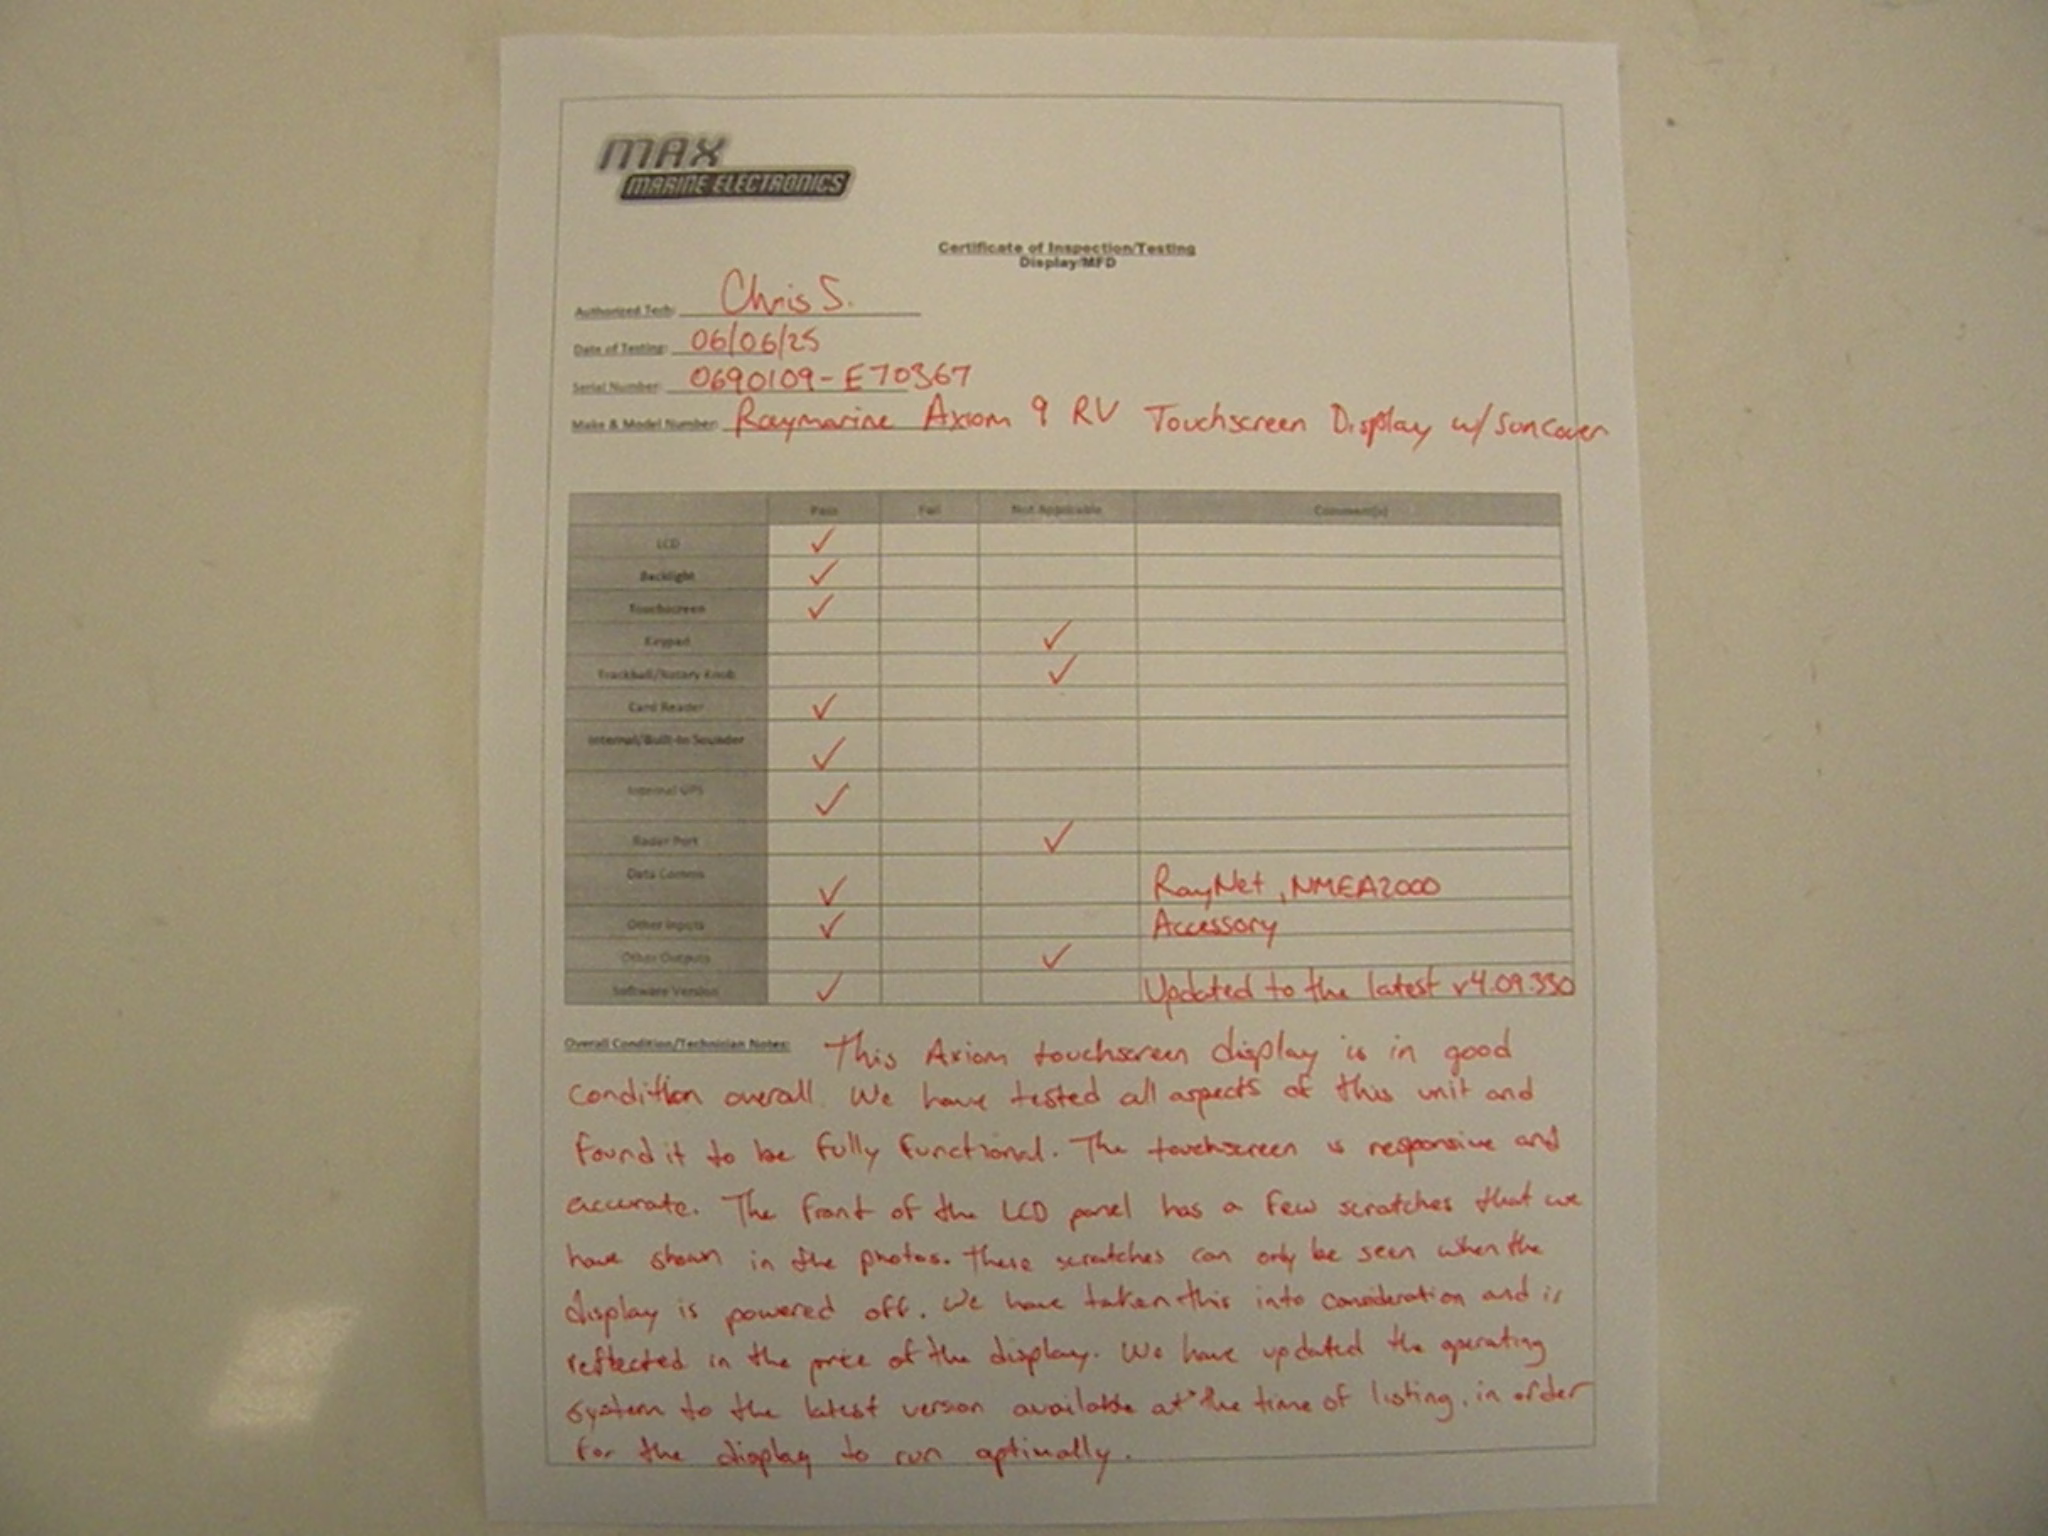 MAX
MARINE ELECTRONICS
Certificate of Inspection/Testing
Display/MFD
Authorized Tech: Chris S.
Date of Testing: 06/06/25
Serial Number: 0690109-E70367
Make & Model Number: Raymarine Axiom 9 RV Touchscreen Display w/ Suncover
Pass Fail Not Applicable Comment(s)
LCD ✓
Backlight ✓
Touchscreen ✓
Keypad ✓
Trackball/Rotary Knob ✓
Card Reader ✓
Internal/Built-In Sounder ✓
Internal GPS ✓
Radar Port ✓
Data Comms ✓ RayNet, NMEA2000
Other Inputs ✓ Accessory
Other Outputs ✓
Software Version ✓ Updated to the latest v4.09.330
Overall Condition/Technician Notes: This Axiom touchscreen display is in good
condition overall. We have tested all aspects of this unit and
found it to be fully functional. The touchscreen is responsive and
accurate. The front of the LCD panel has a few scratches that we
have shown in the photos. These scratches can only be seen when the
display is powered off. We have taken this into consideration and is
reflected in the price of the display. We have updated the operating
system to the latest version available at the time of listing, in order
for the display to run optimally.